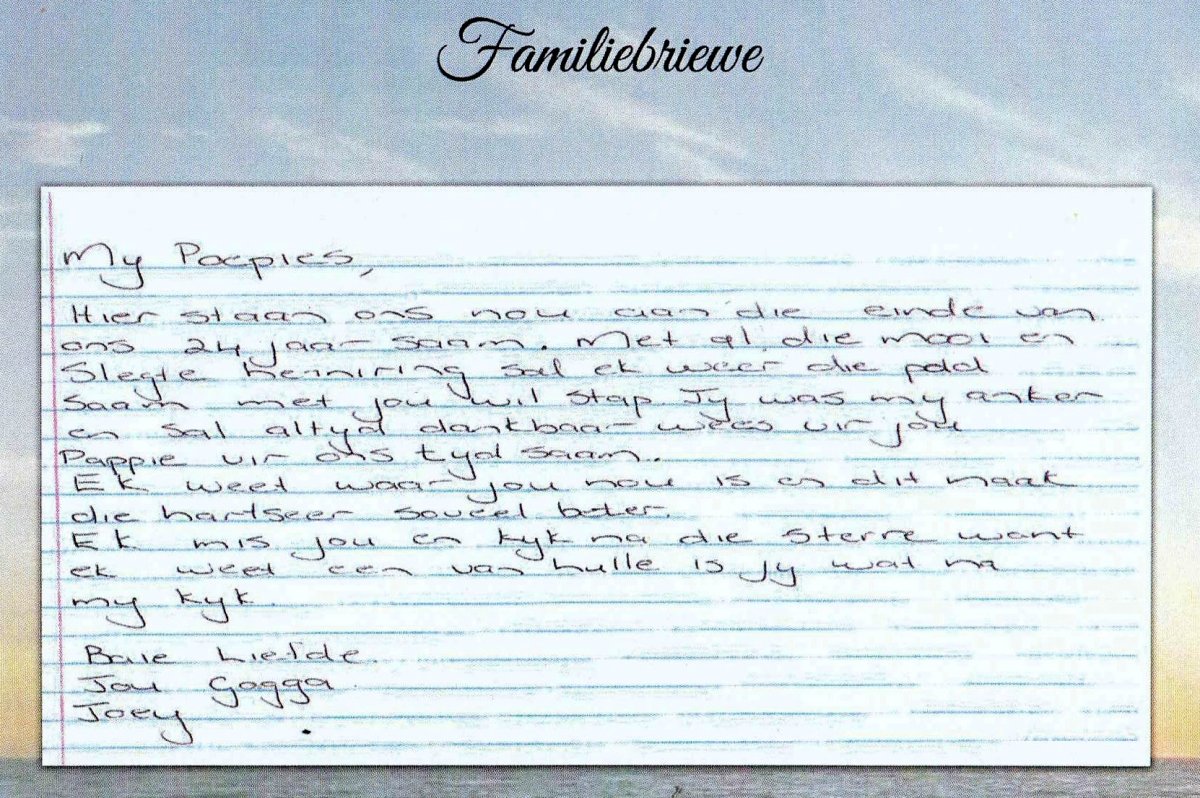 Familiebriewe
My Poepies,
Hier staan ons nou aan die einde van
ons 24 jaar saam. Met al die mooi en
Slegte henniring sal ek weer die pad
saam met jou wil stap Jy was my anker
en sal altyd dankbaar wees vir jou
Pappie vir ons tyd saam.
Ek weet waar jou nou is en dit maak
die hartseer soveel beter.
Ek mis jou en kyk na die sterre want
ek weet een van hulle is jy wat na
my kyk.
Baie Liefde.
Jou Gogga
Joey